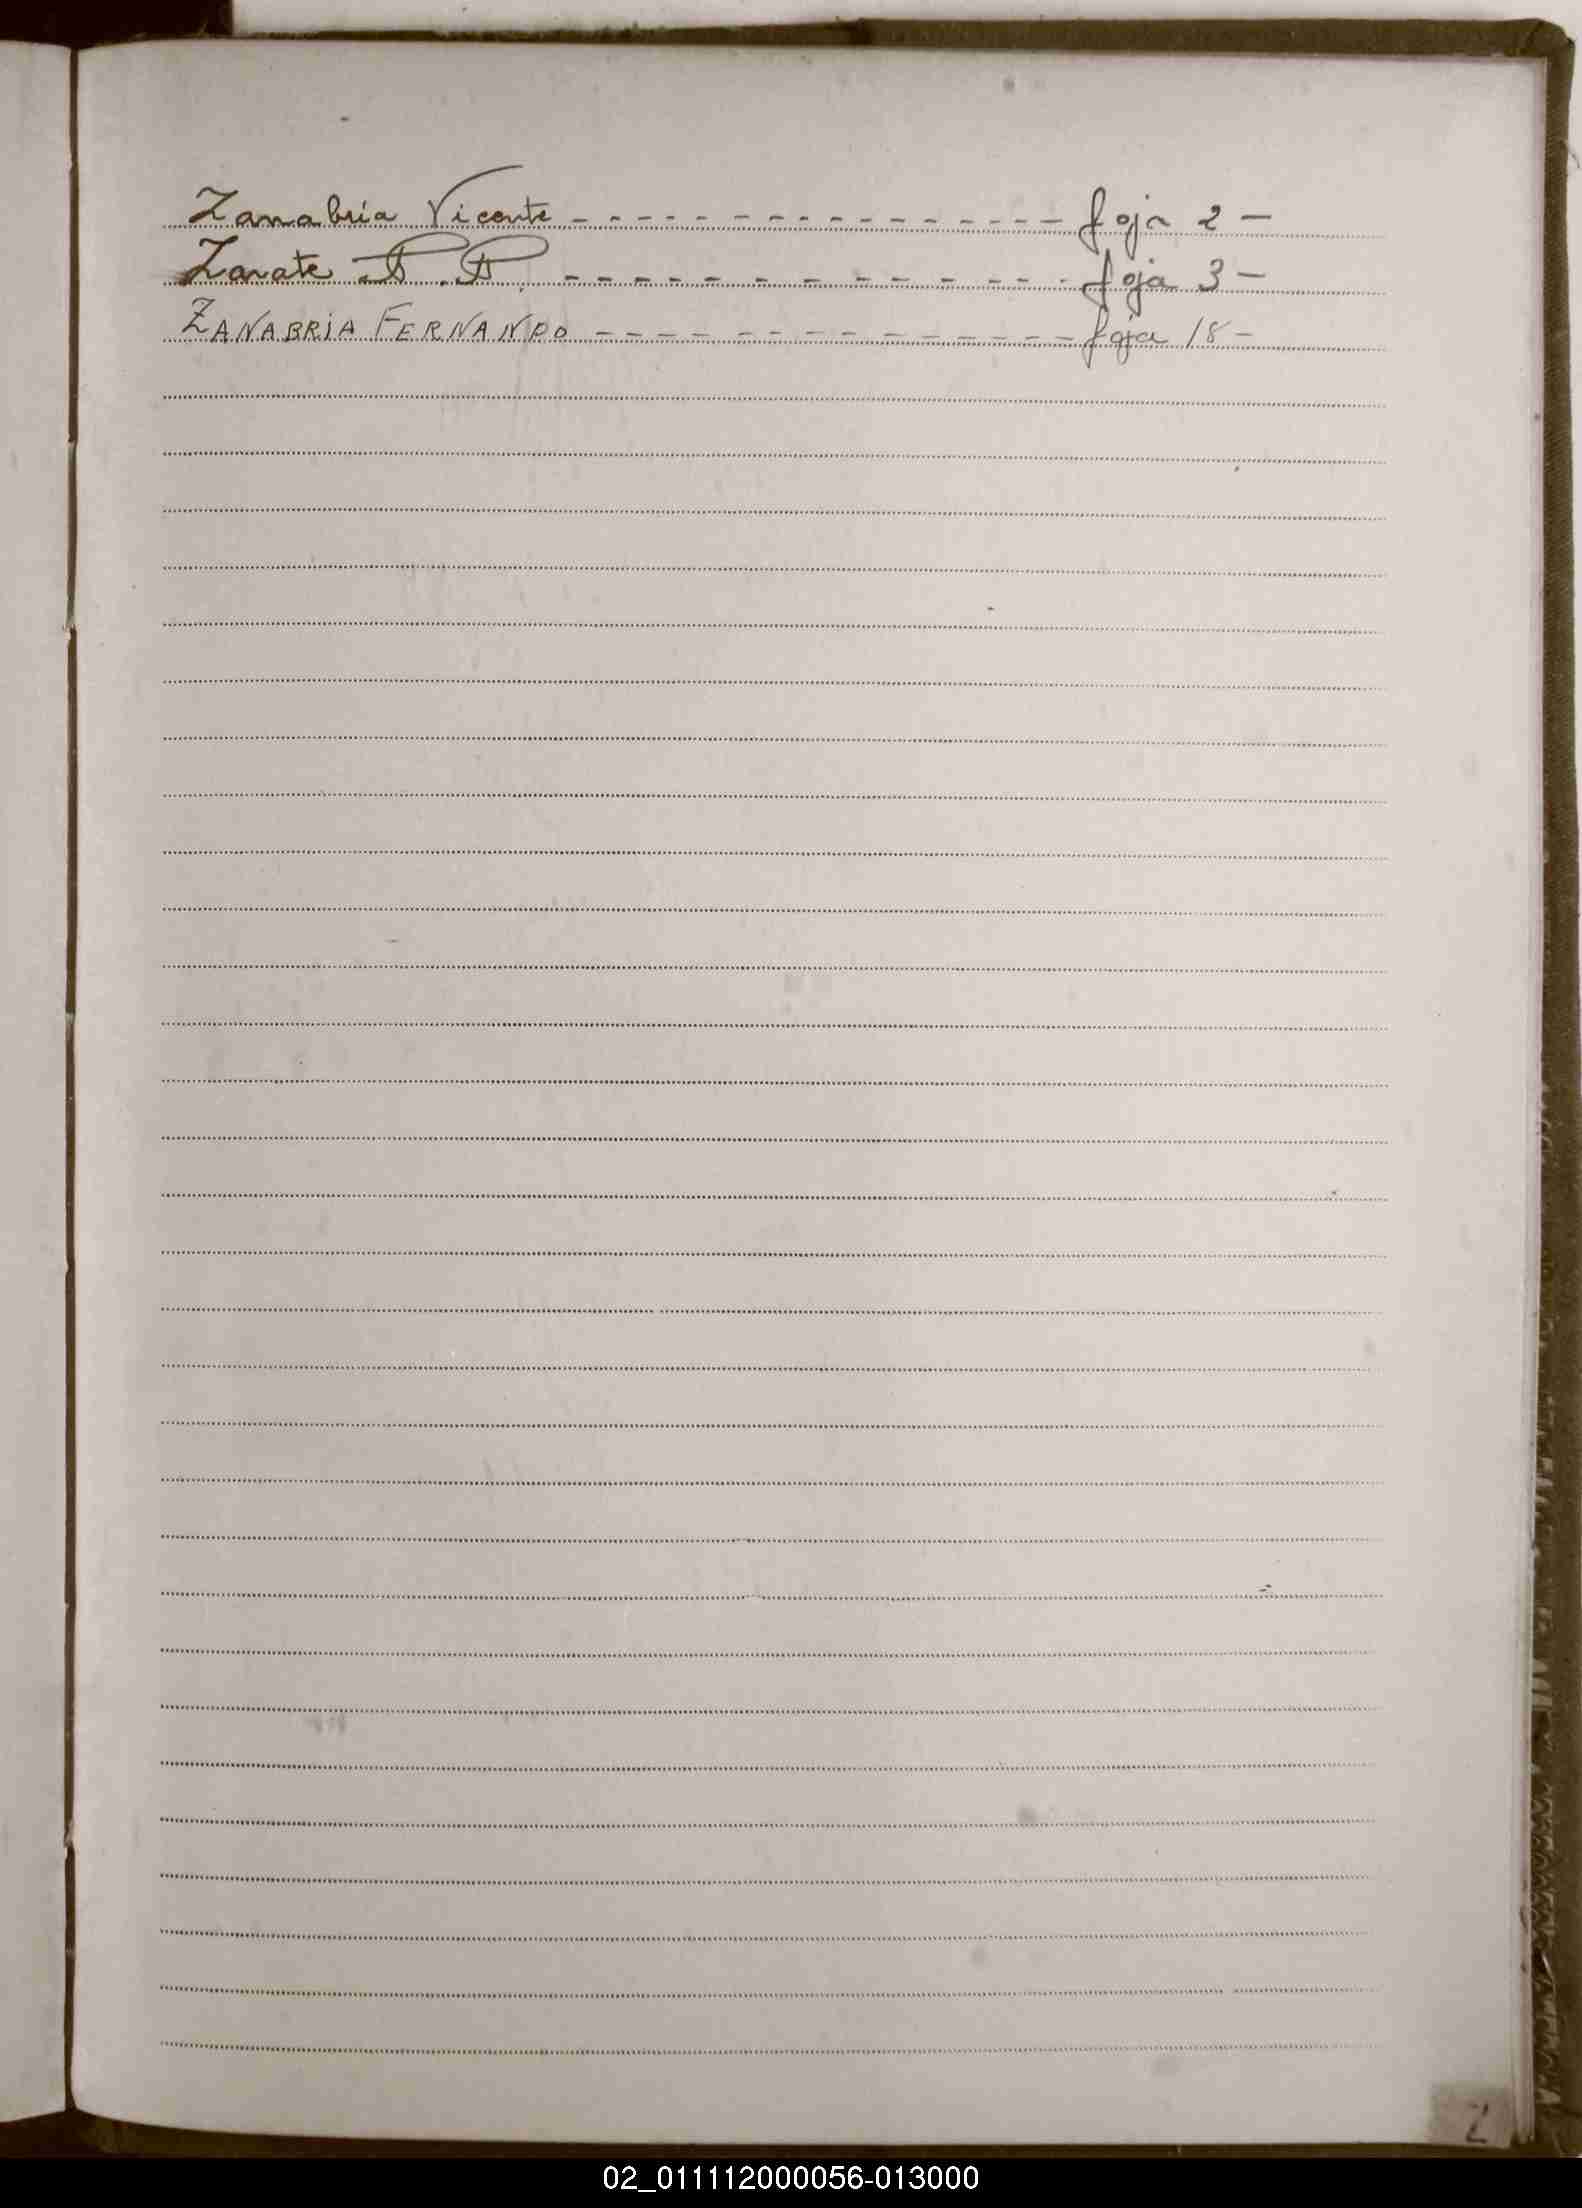 Zanabria Vicente - - - - - - - - - - - - - - - foja 2 -
Zarate P. P. - - - - - - - - - - - - foja 3 -
ZANABRIA FERNANDO - - - - - - - - - - - - - - foja 18 -
Z
02_011112000056-013000